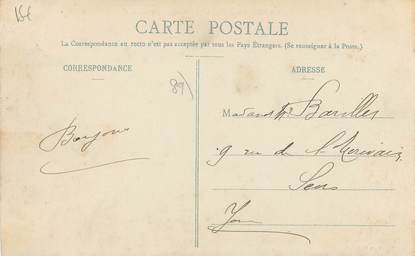 CARTE POSTALE
La Correspondance au recto n'est pas acceptée par tous les Pays Étrangers. (Se renseigner à la Poste.)
CORRESPONDANCE
ADRESSE
89)
Bonjour
9 rue de
Sens
Yonne